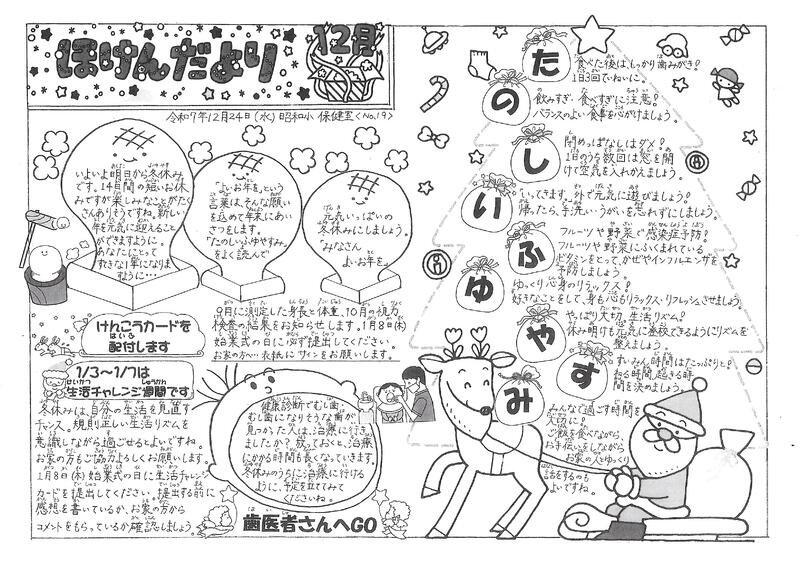 ほけんだより
12月
令和7年12月24日(水) 昭和小 保健室<No.19>
いよいよ明日から冬休み
です。14日間の短いお休
みですが楽しみなことがたく
さんありそうですね。新しい
年を元気に迎えることが
できますように。
あなたにとって
すてきな1年になりま
すように…
「よいお年を。」という
言葉は、そんな願い
を込めて年末にあい
さつをします。
「たのしいふゆやすみ」
をよく読んで
元気いっぱいの
冬休みにしましょう。
「みなさん
よいお年を。」
けんこうカードを
配付します
9月に測定した身長と体重、10月の視力
検査の結果をお知らせします。1月8日(木)
始業式の日に必ず提出してください。
お家の方へ…表紙にサインをお願いします。
1/3～1/7は
生活チャレンジ週間です
冬休みは、自分の生活を見直す
チャンス。規則正しい生活リズムを
意識しながら過ごせるとよいですね。
お家の方もご協力よろしくお願いします。
1月8日(木)始業式の日に生活チャレンジ
カードを提出してください。提出する前に
感想を書いているか、お家の方から
コメントをもらっているか確認しましょう。
健康診断でむし歯・
むし歯になりそうな歯が
見つかった人は、治療に行き
ましたか?放っておくと、治療
にかかる時間も長くなっていきます。
冬休みのうちに治療に行ける
ように、予定を立ててみて
くださいね。
歯医者さんへGO
た
食べた後は、もっかり歯みがき!
1日3回でいねいに。
の
飲みすぎ・食べすぎに注意!
バランスのよい食事を心がけましょう。
し
閉めっぱなしはダメ!
1日のうち数回は窓を開
けて空気を入れかえましょう。
い
いってきます。外で元気に遊びましょう!
帰ったら、手洗いうがいを忘れずにしましょう。
ふ
フルーツや野菜で感染症予防!
フルーツや野菜にふくまれている
ビタミンをとって、かぜやインフルエンザを
予防しましょう
ゆ
ゆっくり心身のリラックス!
好きなことをして、身も心もリラックス・リフレッシュさせましょう。
や
やっぱり大切、生活リズム!
休み明けも元気に登校できるようにリズムを
整えましょう。
す
すいみん時間はたっぷりと!
ねる時間、起きる時
間を決めましょう。
み
みんなで過ごす時間を
大切に!
ご飯を食べながら、
お手伝いをしながら
お家の人とゆっくり
話をするのも
よいですね。